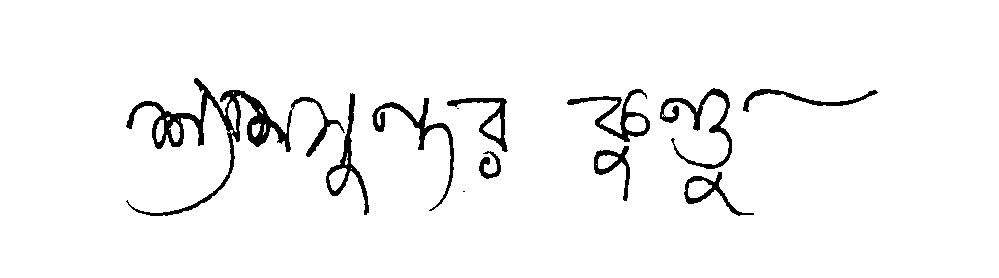 শ্যামসুন্দর কুণ্ডু